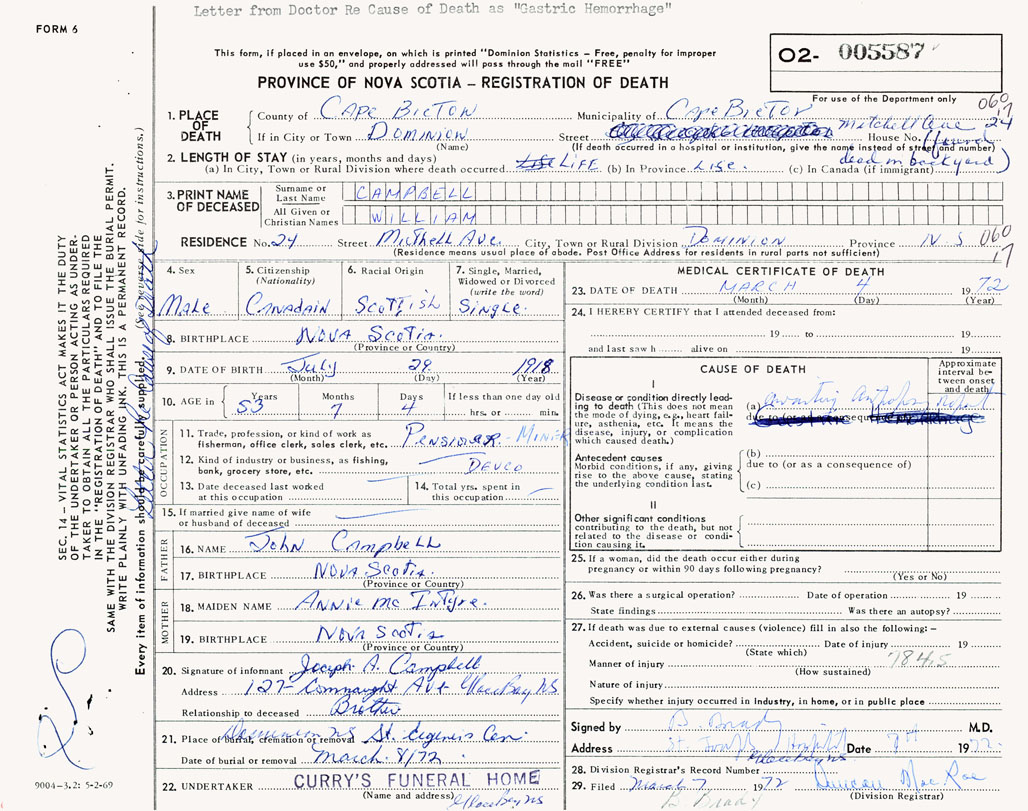 Letter from Doctor Re Cause of Death as "Gastric Hemorrhage"
FORM 6
This form, if placed in an envelope, on which is printed "Dominion Statistics – Free, penalty for improper
use $50," and properly addressed will pass through the mail "FREE"
PROVINCE OF NOVA SCOTIA – REGISTRATION OF DEATH
O2- 005587
For use of the Department only
060
17
1. PLACE OF DEATH
County of Cape Breton Municipality of Cape Breton
If in City or Town Dominion Street Mitchell Ave House No. 24
(Name) (If death occurred in a hospital or institution, give the name instead of street and number)
(found dead in backyard)
2. LENGTH OF STAY (in years, months and days)
(a) In City, Town or Rural Division where death occurred Life (b) In Province Life. (c) In Canada (if immigrant)
3. PRINT NAME OF DECEASED
Surname or Last Name CAMPBELL
All Given or Christian Names WILLIAM
RESIDENCE No. 24 Street Mitchell Ave. City, Town or Rural Division Dominion Province N.S 060
17
(Residence means usual place of abode. Post Office Address for residents in rural parts not sufficient)
4. Sex Male
5. Citizenship (Nationality) Canadain
6. Racial Origin Scottish
7. Single, Married, Widowed or Divorced (write the word) Single.
8. BIRTHPLACE Nova Scotia.
(Province or Country)
9. DATE OF BIRTH July 29 1918
(Month) (Day) (Year)
10. AGE in Years 53 Months 7 Days 4 If less than one day old
hrs. or min.
OCCUPATION
11. Trade, profession, or kind of work as fisherman, office clerk, sales clerk, etc. Pensioner - Miner
12. Kind of industry or business, as fishing, bank, grocery store, etc. Devco
13. Date deceased last worked at this occupation
14. Total yrs. spent in this occupation
15. If married give name of wife or husband of deceased
FATHER
16. NAME John Campbell
17. BIRTHPLACE Nova Scotia.
(Province or Country)
MOTHER
18. MAIDEN NAME Annie Mc Intyre.
19. BIRTHPLACE Nova Scotia
(Province or Country)
20. Signature of informant Joseph A. Campbell
Address 127 Connaught Ave Glace Bay NS
Relationship to deceased Brother
21. Place of burial, cremation or removal Dominion NS St. Eugenis Cem
Date of burial or removal March 8/72
22. UNDERTAKER CURRY'S FUNERAL HOME
(Name and address) Glace Bay NS
MEDICAL CERTIFICATE OF DEATH
23. DATE OF DEATH MARCH 4 1972
(Month) (Day) (Year)
24. I HEREBY CERTIFY that I attended deceased from:
19 to 19
and last saw h alive on 19
CAUSE OF DEATH
Approximate interval between onset and death
I
Disease or condition directly leading to death (This does not mean the mode of dying, e.g., heart failure, asthenia, etc. It means the disease, injury, or complication which caused death.)
(a) awaiting Autopsy Report
due to (or as a consequence of)
Antecedent causes
Morbid conditions, if any, giving rise to the above cause, stating the underlying condition last.
(b)
due to (or as a consequence of)
(c)
II
Other significant conditions
contributing to the death, but not related to the disease or condition causing it.
25. If a woman, did the death occur either during
pregnancy or within 90 days following pregnancy?
(Yes or No)
26. Was there a surgical operation? Date of operation 19
State findings Was there an autopsy?
27. If death was due to external causes (violence) fill in also the following: –
Accident, suicide or homicide? Date of injury 19
(State which)
Manner of injury 784.5
(How sustained)
Nature of injury
Specify whether injury occurred in industry, in home, or in public place
Signed by B. Brady M.D.
Address St. Joseph Hospital Glace Bay NS Date 7 1972
28. Division Registrar's Record Number
29. Filed March 7 1972 Duncan MacRae
B. Brady
(Division Registrar)
SEC. 14 – VITAL STATISTICS ACT MAKES IT THE DUTY
OF THE UNDERTAKER OR PERSON ACTING AS UNDER-
TAKER TO OBTAIN ALL THE PARTICULARS REQUIRED
IN THE "REGISTRATION OF DEATH" AND TO FILE THE
SAME WITH THE DIVISION REGISTRAR WHO SHALL ISSUE THE BURIAL PERMIT.
WRITE PLAINLY WITH UNFADING INK. THIS IS A PERMANENT RECORD.
Every item of information should be carefully supplied. (See reverse side for instructions.)
9004-3.2: 5-2-69